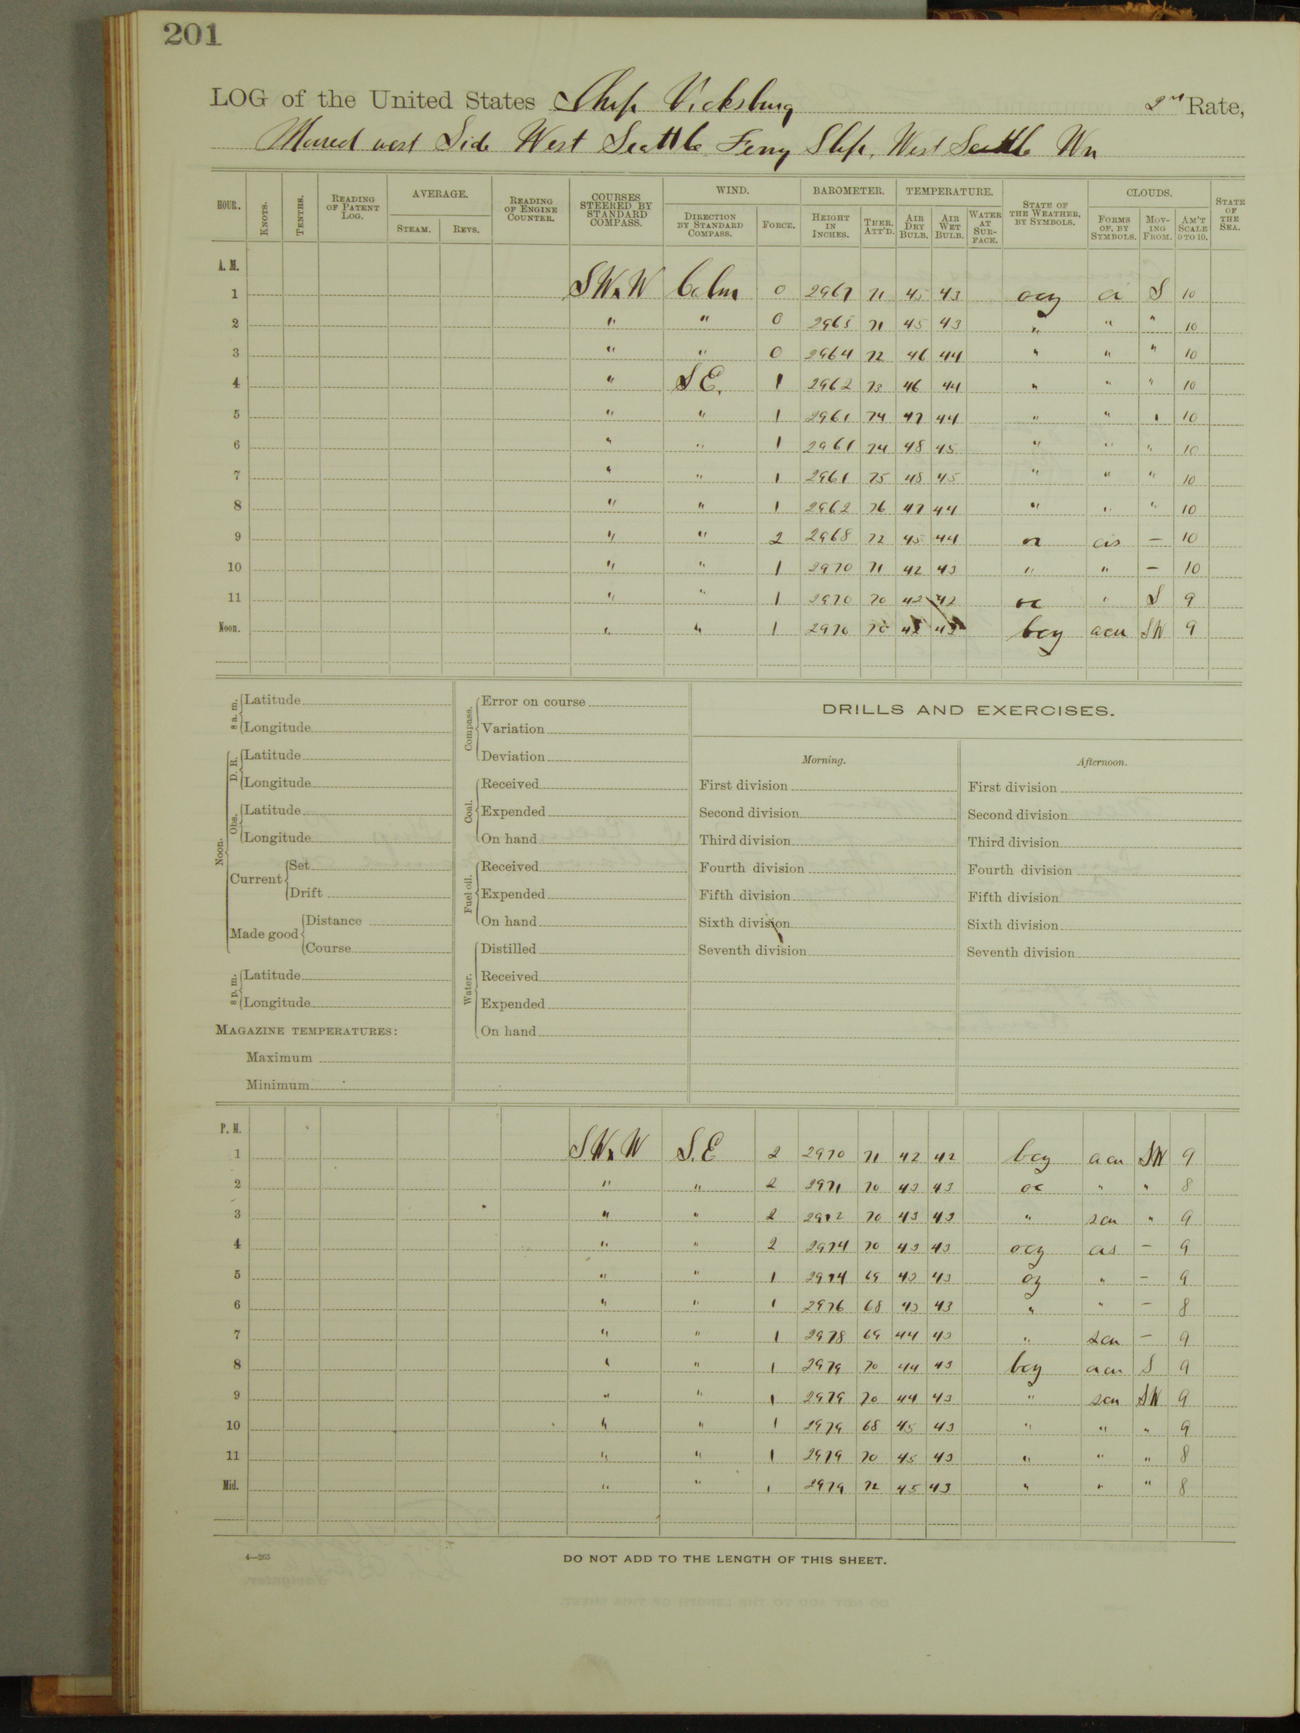 201
LOG of the United States Ship Vicksburg 2nd Rate,
Moored west Side West Seattle Ferry Slip, West Seattle Wn
HOUR. KNOTS. TENTHS. READING OF PATENT LOG. AVERAGE. STEAM. REVS. READING OF ENGINE COUNTER. COURSES STEERED BY STANDARD COMPASS. WIND. DIRECTION BY STANDARD COMPASS. FORCE. BAROMETER. HEIGHT IN INCHES. THER. ATT'D. TEMPERATURE. AIR DRY BULB. AIR WET BULB. WATER AT SURFACE. STATE OF THE WEATHER, BY SYMBOLS. CLOUDS. FORMS OF, BY SYMBOLS. MOVING FROM. AM'T SCALE 0 TO 10. STATE OF THE SEA.
A. M.
1 SWxW Calm 0 2967 71 45 43 ocg ci S 10
2 " " 0 2965 71 45 43 " " " 10
3 " " 0 2964 72 46 44 " " " 10
4 " SE. 1 2962 73 46 44 " " " 10
5 " " 1 2961 74 47 44 " " " 10
6 " " 1 2961 74 48 45 " " " 10
7 " " 1 2961 75 48 45 " " " 10
8 " " 1 2962 76 47 44 " " " 10
9 " " 2 2968 72 45 44 or as — 10
10 " " 1 2970 71 42 43 " " — 10
11 " " 1 2970 70 42 42 oc " S 9
Noon. " " 1 2970 70 bcg acu SW 9
8 a. m. Latitude
Longitude
Noon. D. R. Latitude
Longitude
Obs. Latitude
Longitude
Current Set
Drift
Made good Distance
Course
8 p. m. Latitude
Longitude
MAGAZINE TEMPERATURES:
Maximum
Minimum
Compass. Error on course
Variation
Deviation
Coal. Received
Expended
On hand
Fuel oil. Received
Expended
On hand
Water. Distilled
Received
Expended
On hand
DRILLS AND EXERCISES.
Morning.
First division
Second division
Third division
Fourth division
Fifth division
Sixth division
Seventh division
Afternoon.
First division
Second division
Third division
Fourth division
Fifth division
Sixth division
Seventh division
P. M.
1 SWxW S.E 2 2970 71 42 42 bcg acu SW 9
2 " " 2 2971 70 43 43 oc " " 8
3 " " 2 2972 70 43 43 " scu " 9
4 " " 2 2974 70 43 43 ocg as — 9
5 " " 1 2974 69 43 43 og " — 9
6 " " 1 2976 68 43 43 " " — 8
7 " " 1 2978 69 44 43 " scu — 9
8 " " 1 2979 70 44 43 bcg acu S 9
9 " " 1 2979 70 44 43 " scu SW 9
10 " " 1 2979 68 45 43 " " " 9
11 " " 1 2979 70 45 43 " " " 8
Mid. " " 1 2979 72 45 43 " " " 8
4—263
DO NOT ADD TO THE LENGTH OF THIS SHEET.